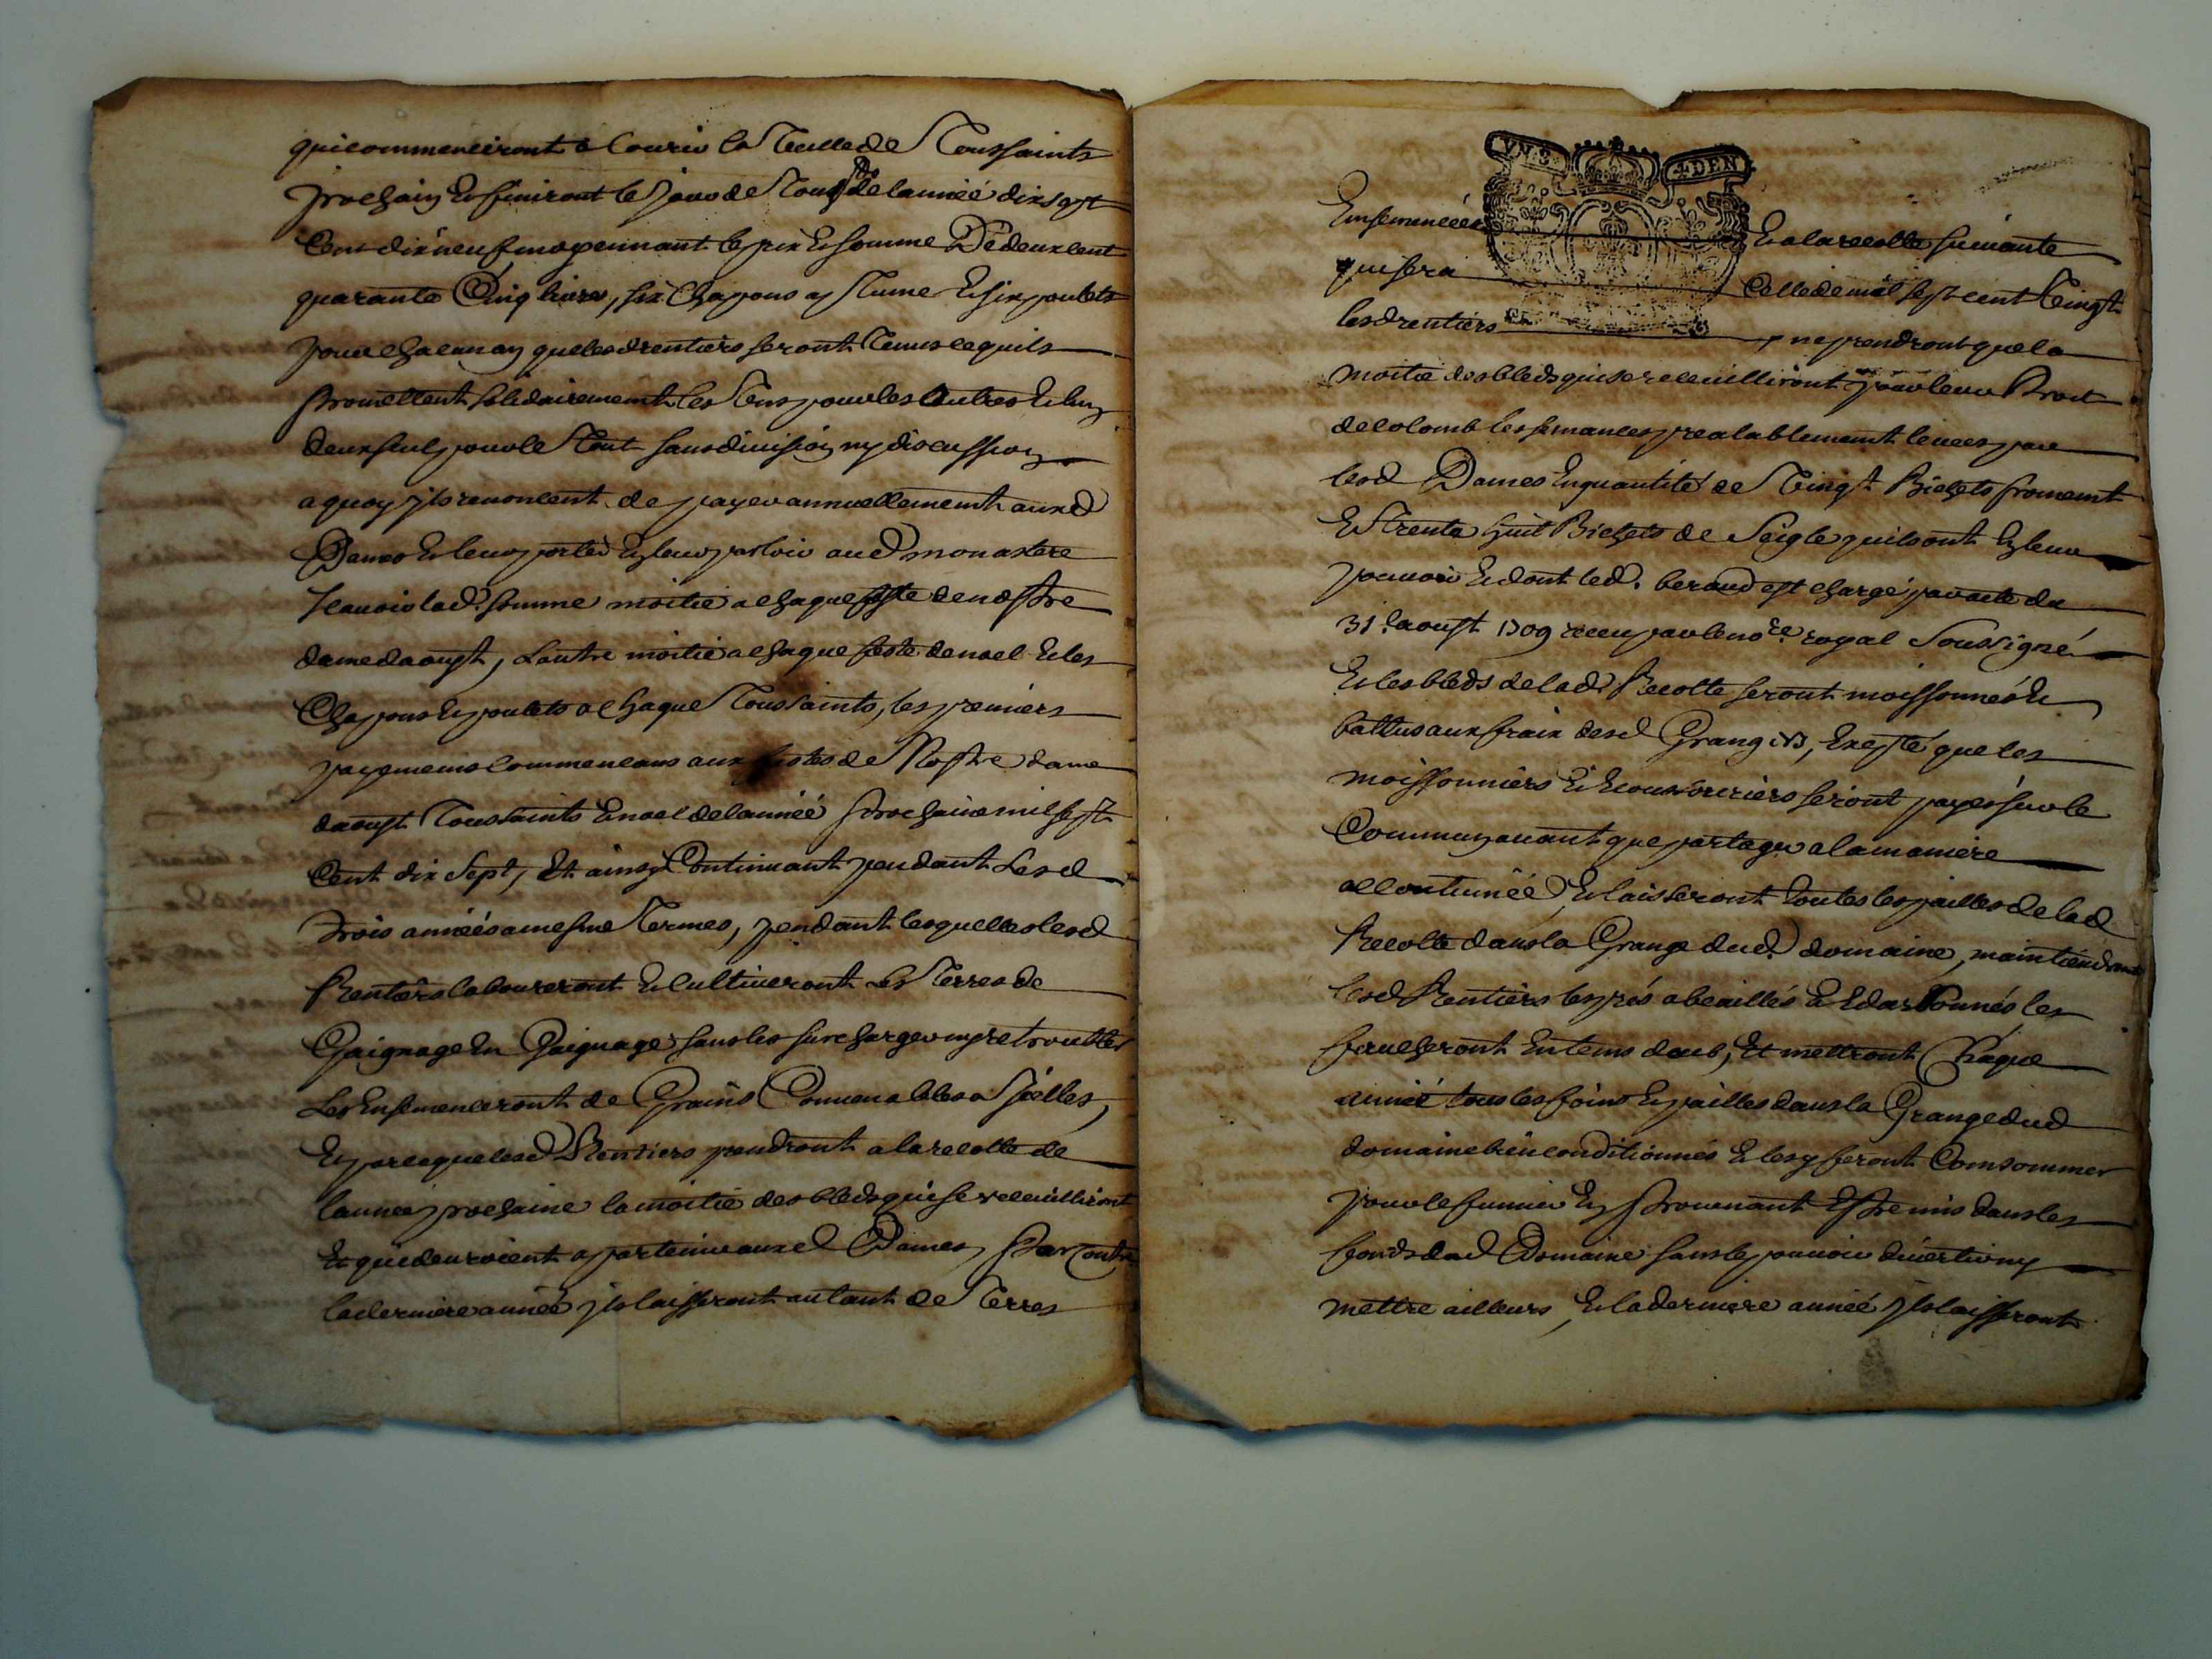 qui commenceront a Courir la veille de Toussaints
prochain Et finiront le Jour de Touss.ts de lannéé dix sept
Cent dix neuf moyennant le prix Et somme De deux cent
quarante Cinq livres, six Chapons a plume Et six poulets
pour chacun an que lesd rentiers seront Tenus ce quils
promettent solidairement les Uns pour les Autres Et lun
deux seul pour le Tout sans division ny discussion
a quoy jls renoncent de payer annuellement auxd
Dames Et leur porter En leur parloir aud monastere
scavoir lad. somme moitié a chaque feste de nostre
dame daoust, Lautre moitié a chaque feste de noel Et les
Chapons Et poulets a chaque Toussaints, les premiers
payemens Commencans aux festes de Nostre dame
daoust Toussaints Et noel de lannéé prochaine mil sept
Cent dix Sept, Et ainsy Continuant pendant Lesd
trois annéés a mesme Termes, pendant lesquelles lesd
Rentiers laboureront Et Cultiveront Les Terres de
Gaignage En Gaignage sans les surcharger ny retroubler
Les Ensemenceront de Grains Convenables a Jcelles,
Et parce que lesd Rentiers prendront a la recolte de
lannéé prochaine la moitié des bleds qui se recuilliront
Et qui devroient appartenir auxd Dames, Par Contre
la derniere annéé jls laisseront autant de Terres
VV.3. 4.DEN
Ensemencéés Et a la recolte suivante
qui sera Celle de mil sept cent Vingt
lesd rentiers ne prendront que la
moitié des bleds qui se recuilliront pour leur Droit
de Colomb les semances prealablement levees par
lesd Dames En quantité de Vingt Bichets froment
Et Trente huit Bichets de Seigle quils ont En leur
pouvoir Et dont led. beraud est chargé par acte du
31. aoust 1709 receu par le no.re royal Soussigné
Et les bleds de lad. Recolte seront moissonnés Et
battus aux frais desd Grangers, Excepté que les
moissonniers Et Ecoussoriers seront payés sur le
Commun avant que partager a la maniere
accoutuméé, Et laisseront toutes les pailles de lad
Recolte dans la Grange dud. domaine, maintiendront
lesd Rentiers les prés abeaillés Et Edarbonnés les
faucheront En tems deub, Et mettront Chaque
annéé tous les foins Et pailles dans la Grange dud
domaine bien conditionnés Et les y feront Comsommer
pour le fumier En Provenant Estre mis dans les
fonds dud Domaine sans le pouvoir divertir ny
mettre ailleurs, Et la derniere annéé jls laisseront